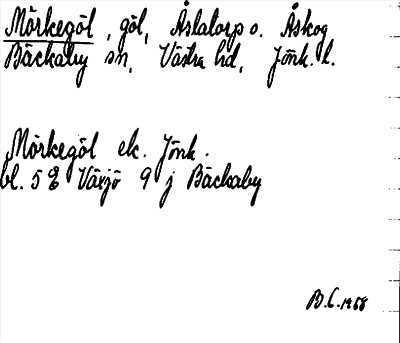 Mörkegöl, göl, Åslatorp o. Åskog
Bäckaby sn, Västra hd, Jönk. l.
Mörkegöl ek. Jönk.
bl. 5 E Växjö 9 j Bäckaby
B.L. 1968